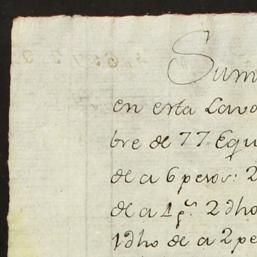 Sum
en esta Lavo
bre de 77 Equ
de a 6 pesos: 2
de a 1 p.º 2 dho
1 dho de a 2 pe